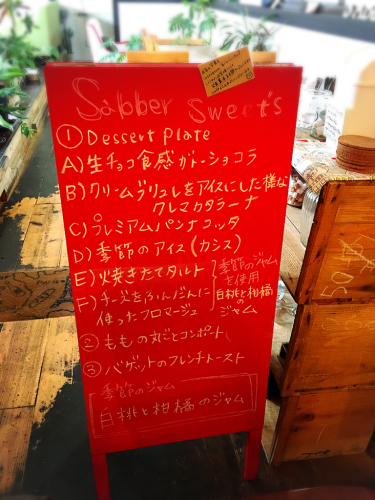 Sabber Sweet's
① Dessert plate
A)生チョコ食感ガトーショコラ
B)クリームブリュレをアイスにした様な
クレマカタラーナ
C)プレミアムパンナコッタ
D)季節のアイス(カシス)
E)焼きたてタルト
F)チーズをふんだんに
使ったフロマージュ
季節のジャム
を使用
白桃と柑橘
の
ジャム
② ももの丸ごとコンポート
③ バゲットのフレンチトースト
季節のジャム
白桃と柑橘のジャム